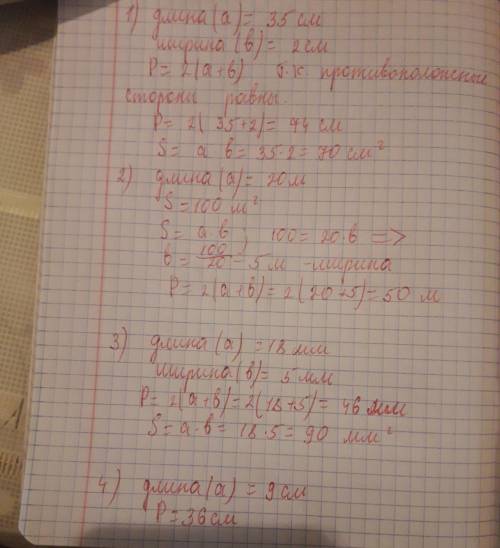 1) длина (а) = 35 см
ширина (в) = 2 см
P = 2(а+в) т.к. противоположные
стороны равны.
P = 2(35+2) = 94 см
S = а в = 35·2 = 70 см²
2) длина (а) = 20 м
S = 100 м²
S = а·в ; 100 = 20·в =>
в = 100/20 = 5 м - ширина
P = 2(а+в) = 2(20+5) = 50 м
3) длина (а) = 18 мм
ширина (в) = 5 мм
P = 2(а+в) = 2(18+5) = 46 мм
S = а·в = 18·5 = 90 мм²
4) длина (а) = 9 см
P = 36 см